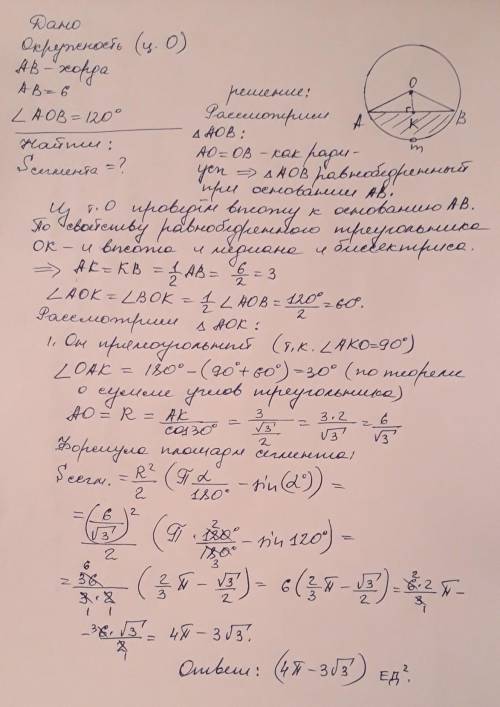 Дано
Окружность (ц. О)
АВ - хорда
АВ = 6
∠АОВ = 120°
Найти:
Sсегмента = ?
O
A
B
K
m
решение:
Рассмотрим
△АОВ:
АО = ОВ - как ради-
усы ⇒ △АОВ равнобедренный
при основании АВ.
Из т. О проведём высоту к основанию АВ.
По свойству равнобедренного треугольника
ОК - и высота и медиана и биссектриса.
⇒ АК = КВ = 1/2 АВ = 6/2 = 3
∠АОК = ∠ВОК = 1/2 ∠АОВ = 120°/2 = 60°.
Рассмотрим △АОК:
1. Он прямоугольный (т.к. ∠АКО = 90°)
∠ОАК = 180° - (90° + 60°) = 30° (по теореме
о сумме углов треугольника)
АО = R = АК/cos30° = 3/(√3/2) = 3·2/√3 = 6/√3
Формула площади сегмента:
Sсегм. = R²/2 (П α/180° - sin(α°)) =
= (6/√3)²/2 (П · 120°/180° - sin 120°) =
= 36/3·2 (2/3 π - √3/2) = 6(2/3 π - √3/2) = 6·2/3 π -
- 6·√3/2 = 4π - 3√3.
Ответ: (4π - 3√3) ед².